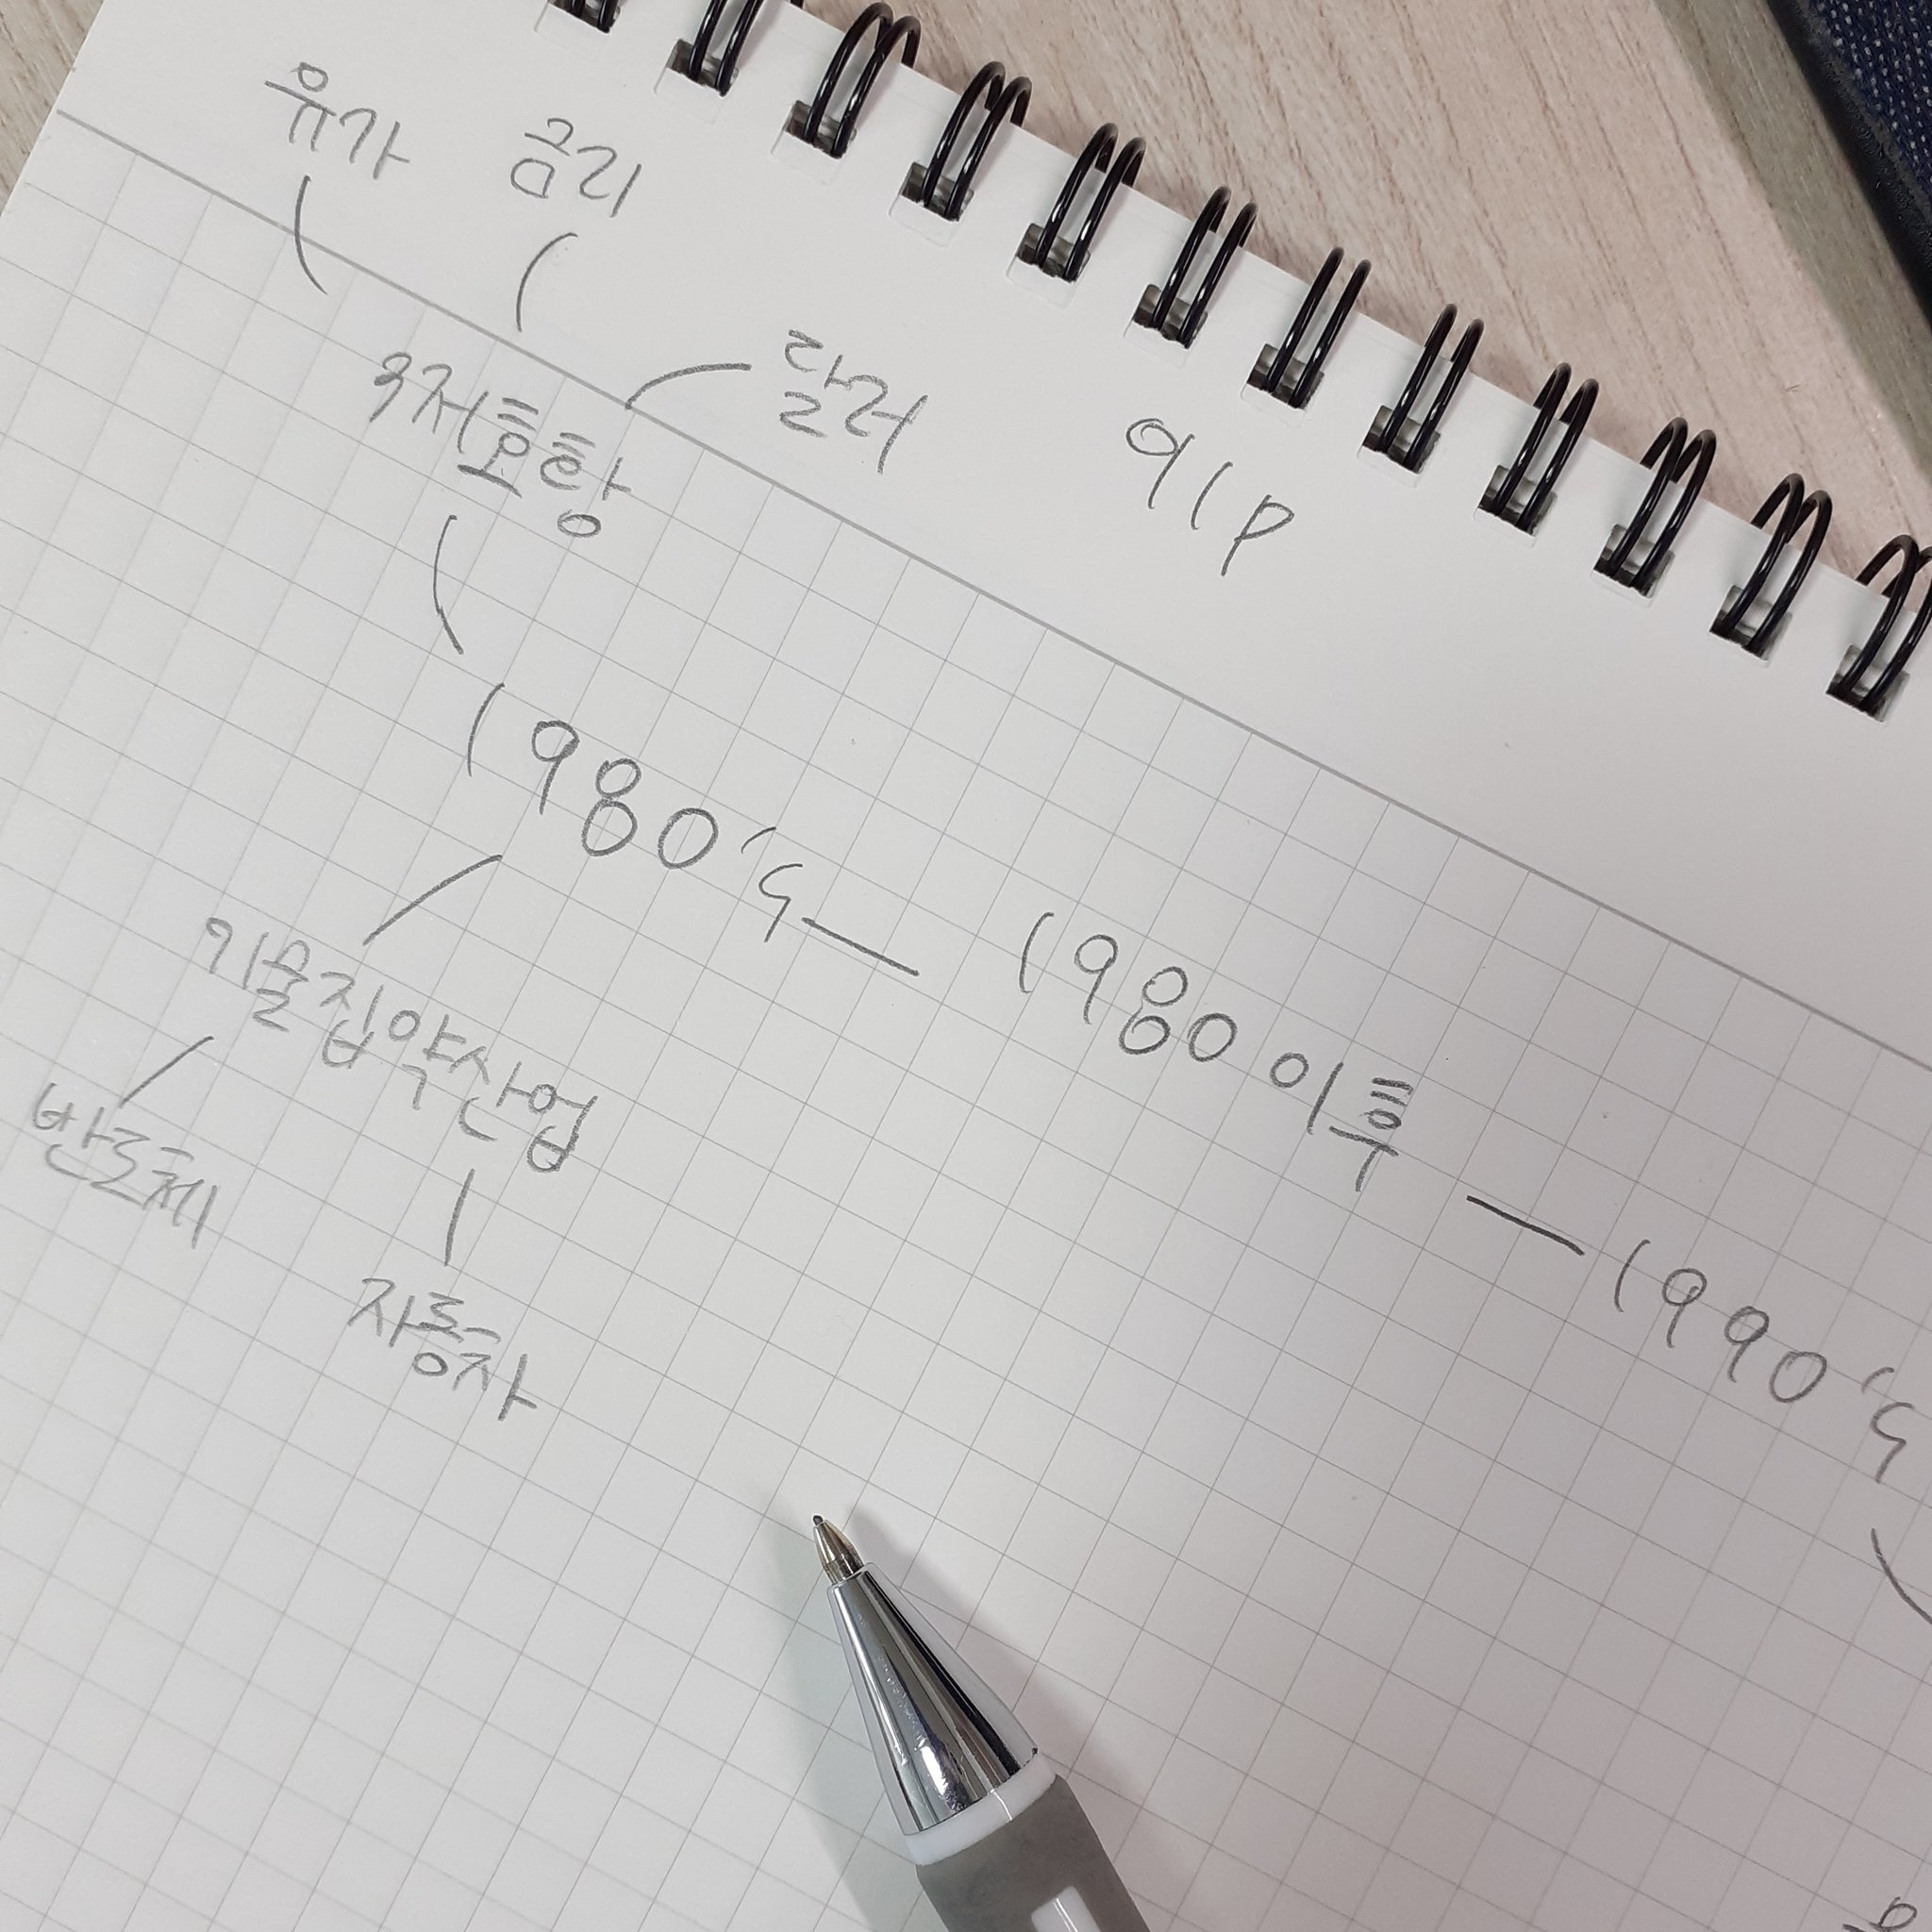 유가 금리
달러
3저호황
91p
1980's — 1980 이후 — 1990's
기술집약산업
반도체
자동차